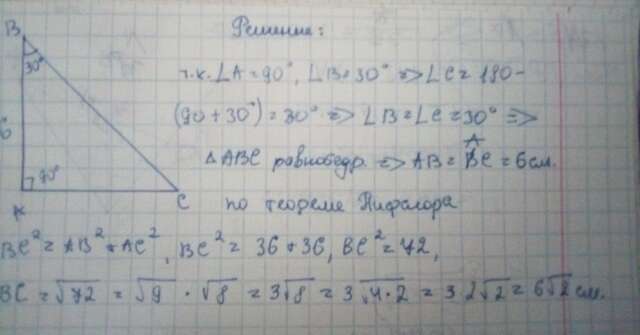 Решение:
B
30°
т.к. ∠A = 90°, ∠B = 30° => ∠C = 180 -
(90 + 30°) = 30° => ∠B = ∠C = 30° =>
6
A
△ABC равнобедр. => AB = BC = 6 см.
90°
A
C
по теореме Пифагора
BC² = AB² + AC², BC² = 36 + 36, BC² = 72,
BC = √72 = √9 · √8 = 3√8 = 3√4·2 = 3 2√2 = 6√2 см.